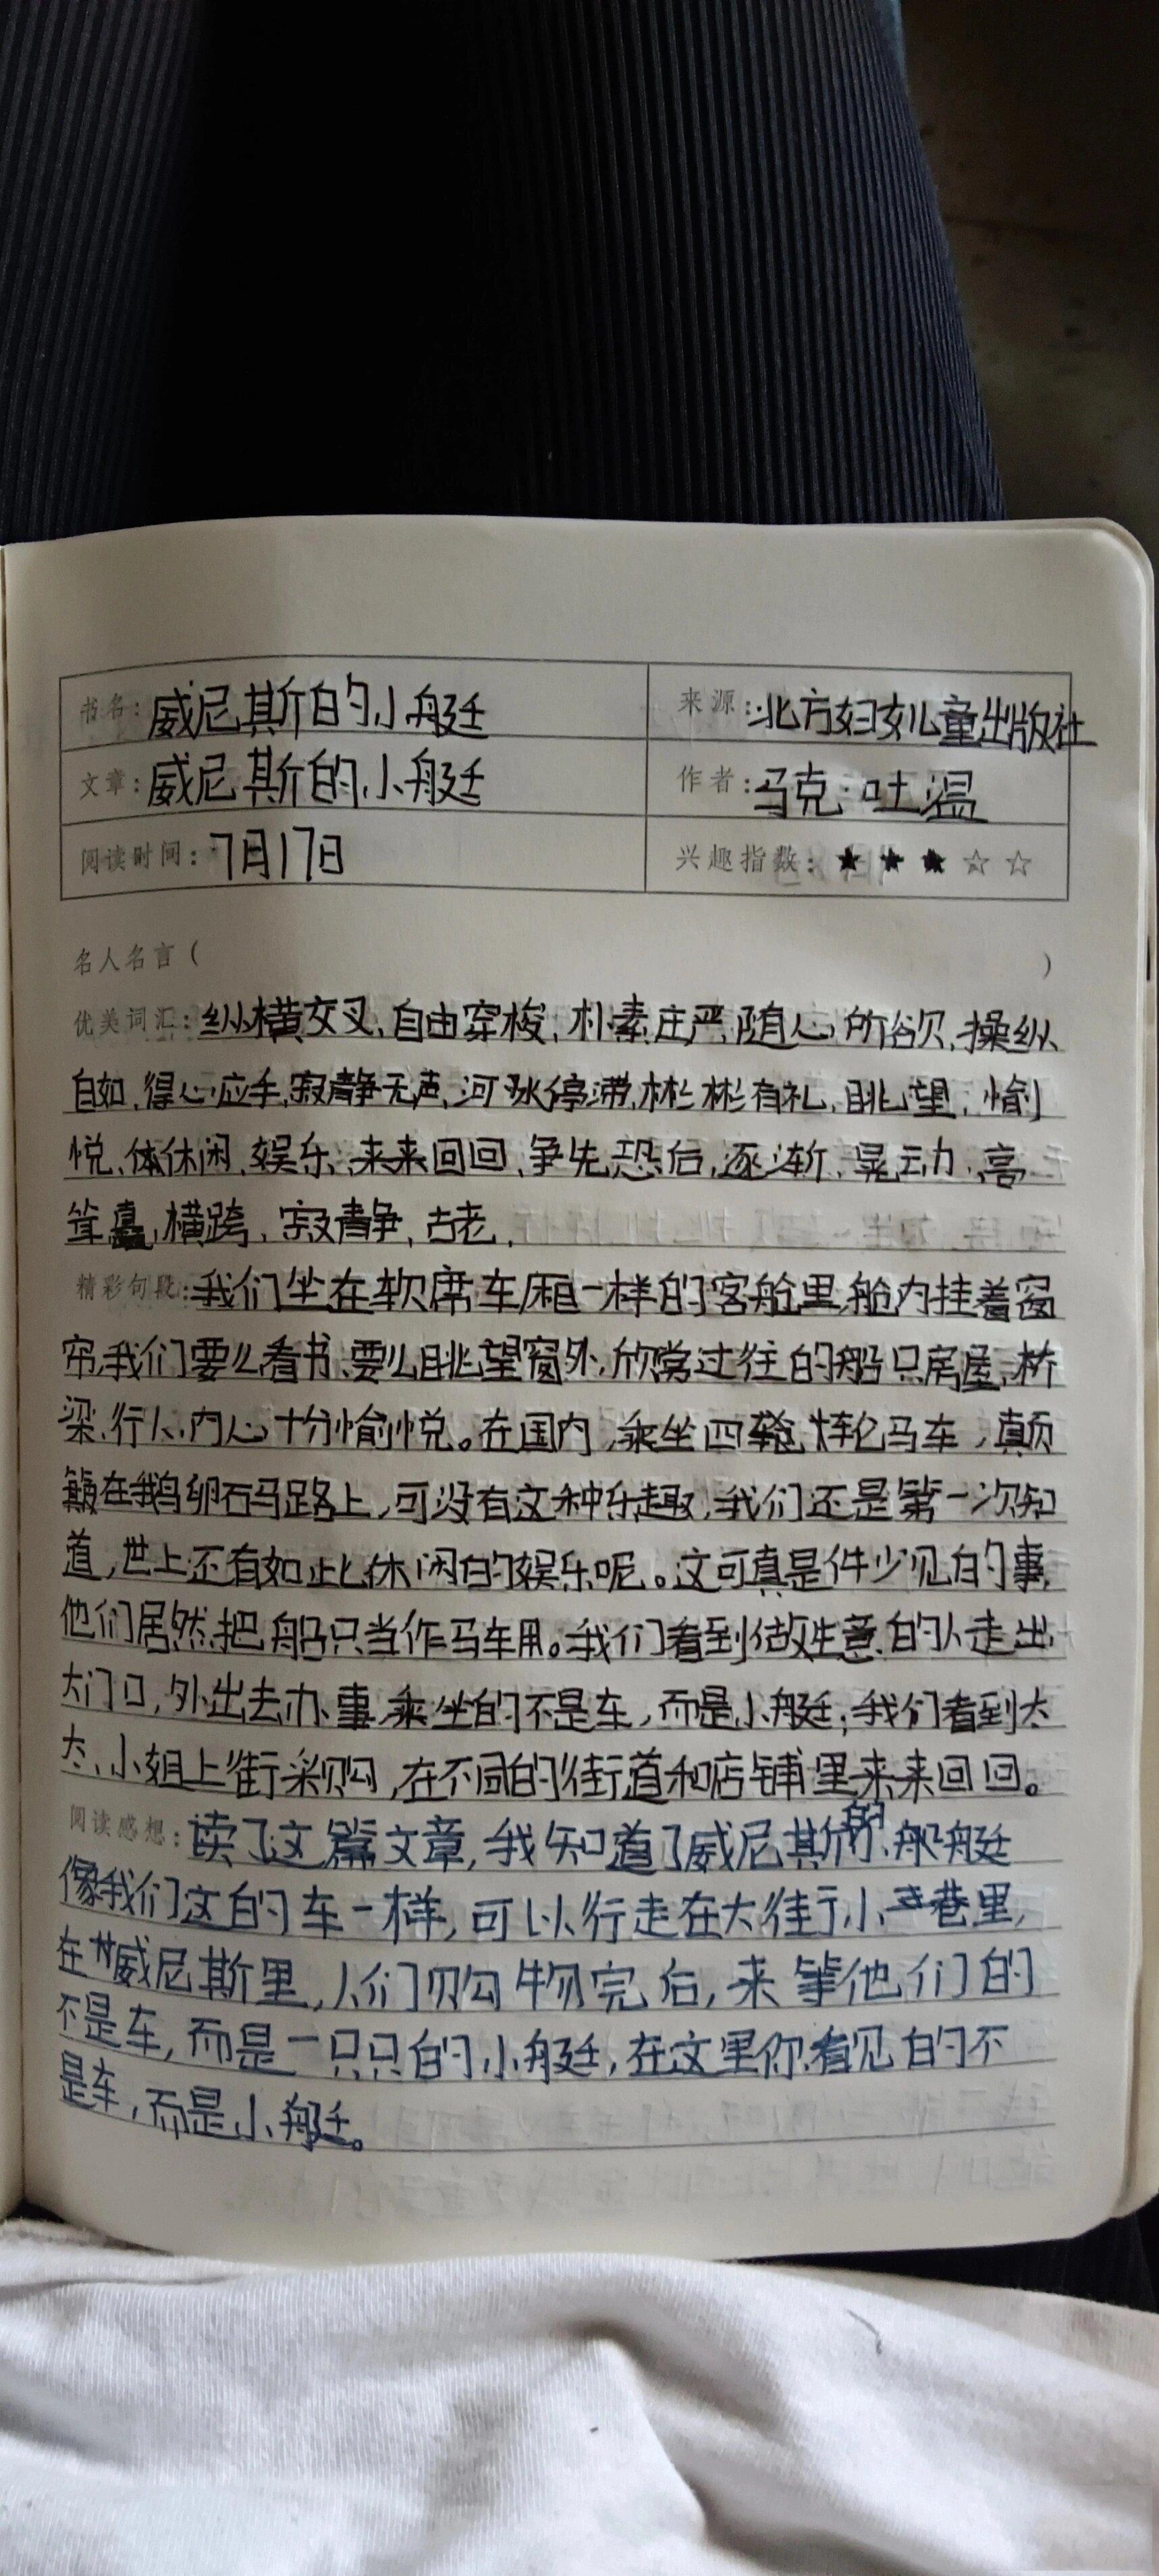 书名：威尼斯的小艇 来源：北方妇女儿童出版社
文章：威尼斯的小艇 作者：马克·吐温
阅读时间：7月17日 兴趣指数：★★★☆☆
名人名言（ ）
优美词汇：纵横交叉、自由穿梭、朴素庄严、随心所欲、操纵
自如、得心应手、寂静无声、河水停滞、彬彬有礼、眺望、愉
悦、休闲、娱乐、来来回回、争先恐后、逐渐、晃动、高
耸矗、横跨、寂静、古老、
精彩句段：我们坐在软席车厢一样的客舱里，舱内挂着窗
帘，我们要么看书、要么眺望窗外，欣赏过往的船只房屋、桥
梁、行人，内心十分愉悦。在国内，乘坐四轮马车，颠
簸在鹅卵石马路上，可没有这种乐趣，我们还是第一次知
道，世上还有如此休闲的娱乐呢。这可真是件少见的事，
他们居然把船只当作马车用。我们看到做生意的人走出
大门口，外出去办事，乘坐的不是车，而是小艇；我们看到太
太、小姐上街采购，在不同的街道和店铺里来来回回。
阅读感想：读了这篇文章，我知道了威尼斯的船艇
像我们这的车一样，可以行走在大街小巷里，
在威尼斯里，人们购物完后，来等他们的
不是车，而是一只只的小艇，在这里你看见的不
是车，而是小艇。